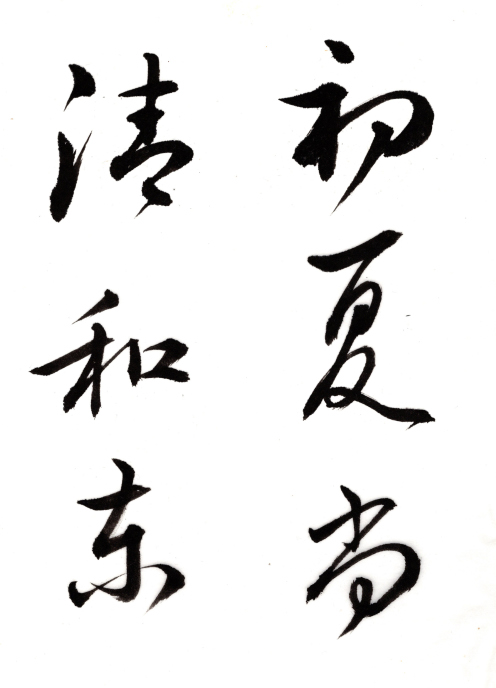 初夏尚
清和东